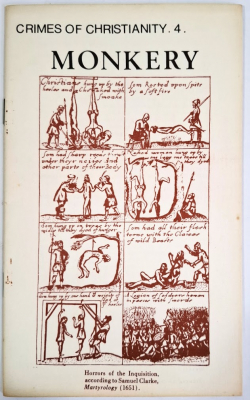 CRIMES OF CHRISTIANITY. 4.
MONKERY
Christians hung up by the
heeles and Choaked with
smoake
Som Rosted upon spits
by a soft fire
Som had sharp
under their nailes and
other parts of their Body
women hung up by
they dyed
Som hung up on trees by the
Som had all their flesh
torne with the Clawes
of wild Beasts
Som hung up by one hand &
A Legion of Soldyers hewen
in pieces with swords
Horrors of the Inquisition,
according to Samuel Clarke,
Martyrology (1651).